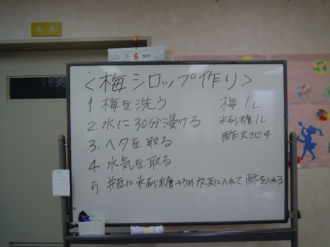 ＜梅シロップ作り＞
1. 梅を洗う
2. 水に30分浸ける
3. ヘタを取る
4. 水気を取る
5. 井に氷砂糖 交互に入れて 酢を入れる
梅 1L
氷砂糖 1L
酢 大さじ4
6